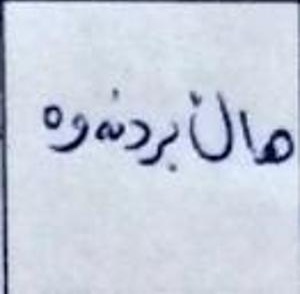 هاڵ بردنەوە